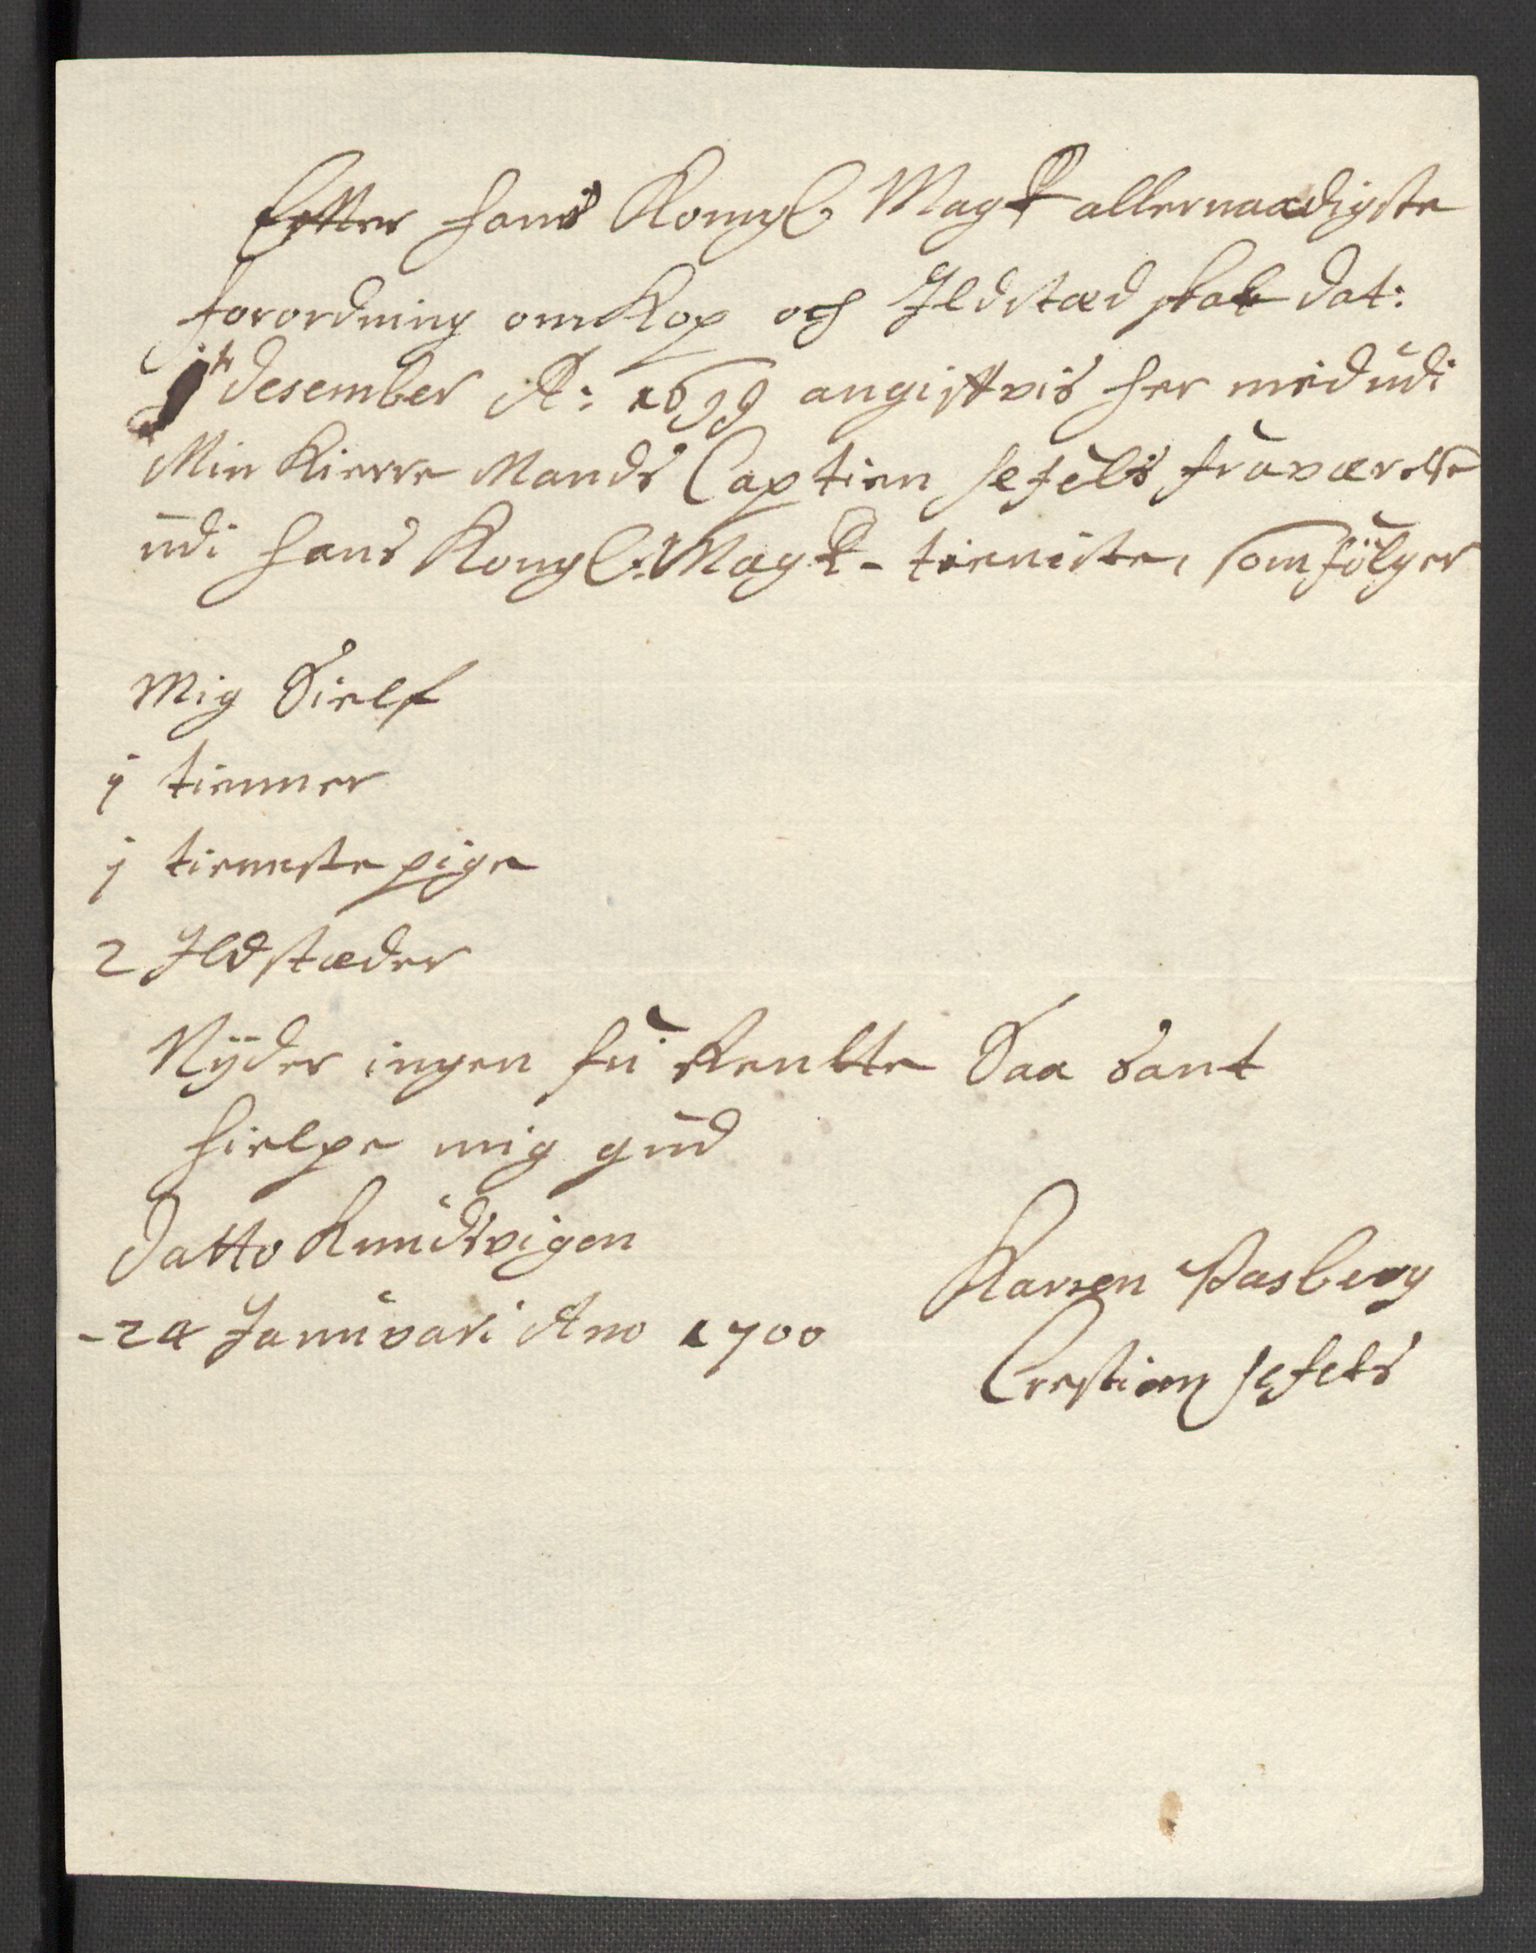 Effter hans Kongl. Mayt allernaadigste
forordning om Kop och Ildstæd skat dat:
1t desember A: 1699 angiftvis her med udi
Min Kierre Mands Captien Sefels fraværelse
udi hans Kongl: Mayt- tieniste, som fölger
Mig Sielf
j tienner
j tienneste pige
2 Ildstæder
Nÿder ingen fri Renlte Saa sant
hielpe mig gud
Datto Knudsvigen
-24 Januvari Ano 1700
Karren Pasberg
Crestian Sefels